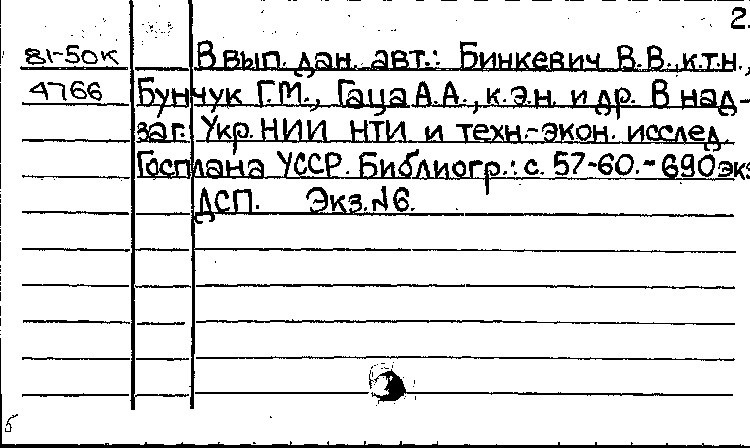 2.
81-50к В вып. дан. авт.: Бинкевич В.В., к.т.н.,
4766 Бунчук Г.М., Гаца А.А., к.э.н. и др. В над-
заг. Укр.НИИ НТИ и техн.-экон. исслед.
Госплана УССР. Библиогр.: с. 57-60. - 690 экз
ДСП. Экз.№6.